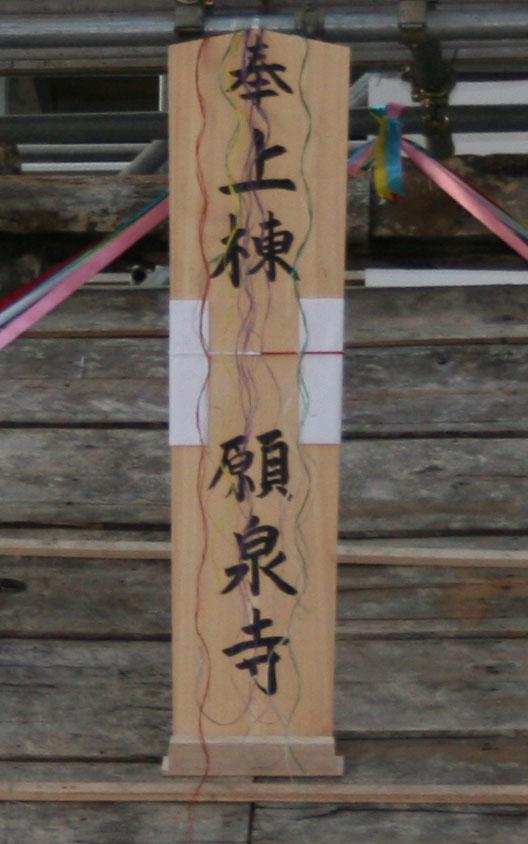 奉上棟　願泉寺